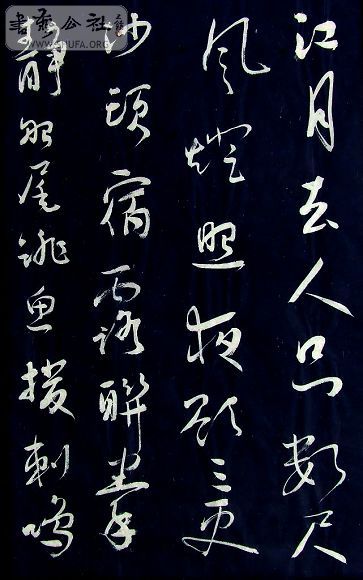 書藝公社
SHUFA.ORG
江月去人只數尺
風燈照夜欲三更
沙頭宿露聯拳
靜船尾跳魚撥剌鳴